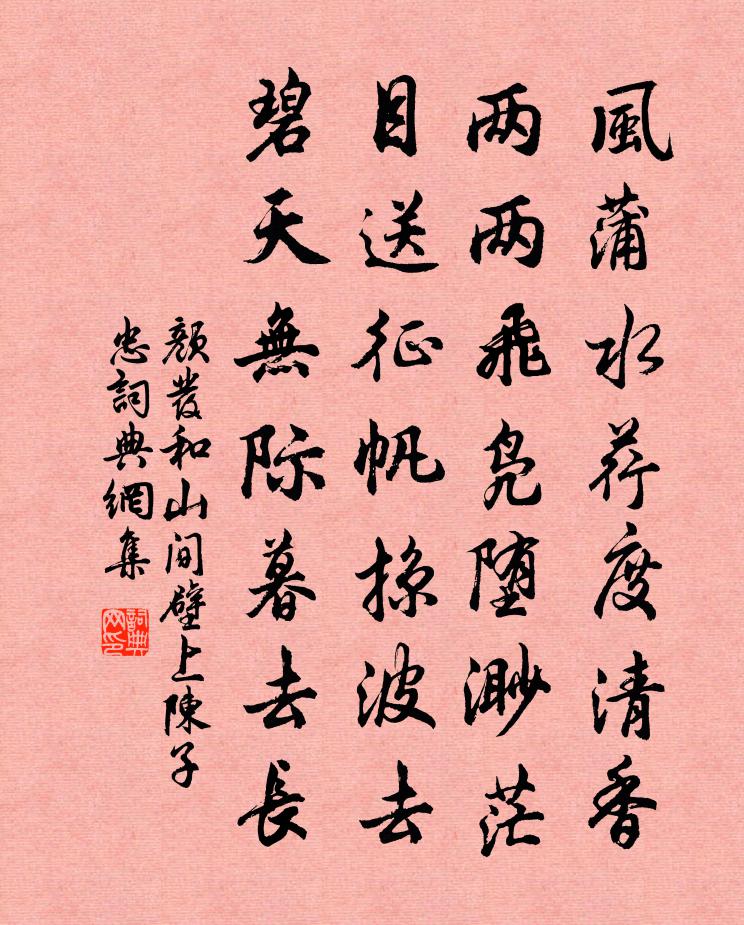 風蒲水荇度清香
两两飛鳧堕渺茫
目送征帆掠波去
碧天無际暮去長
顏發和山間壁上陳子
忠詞典網集
詞典
网印